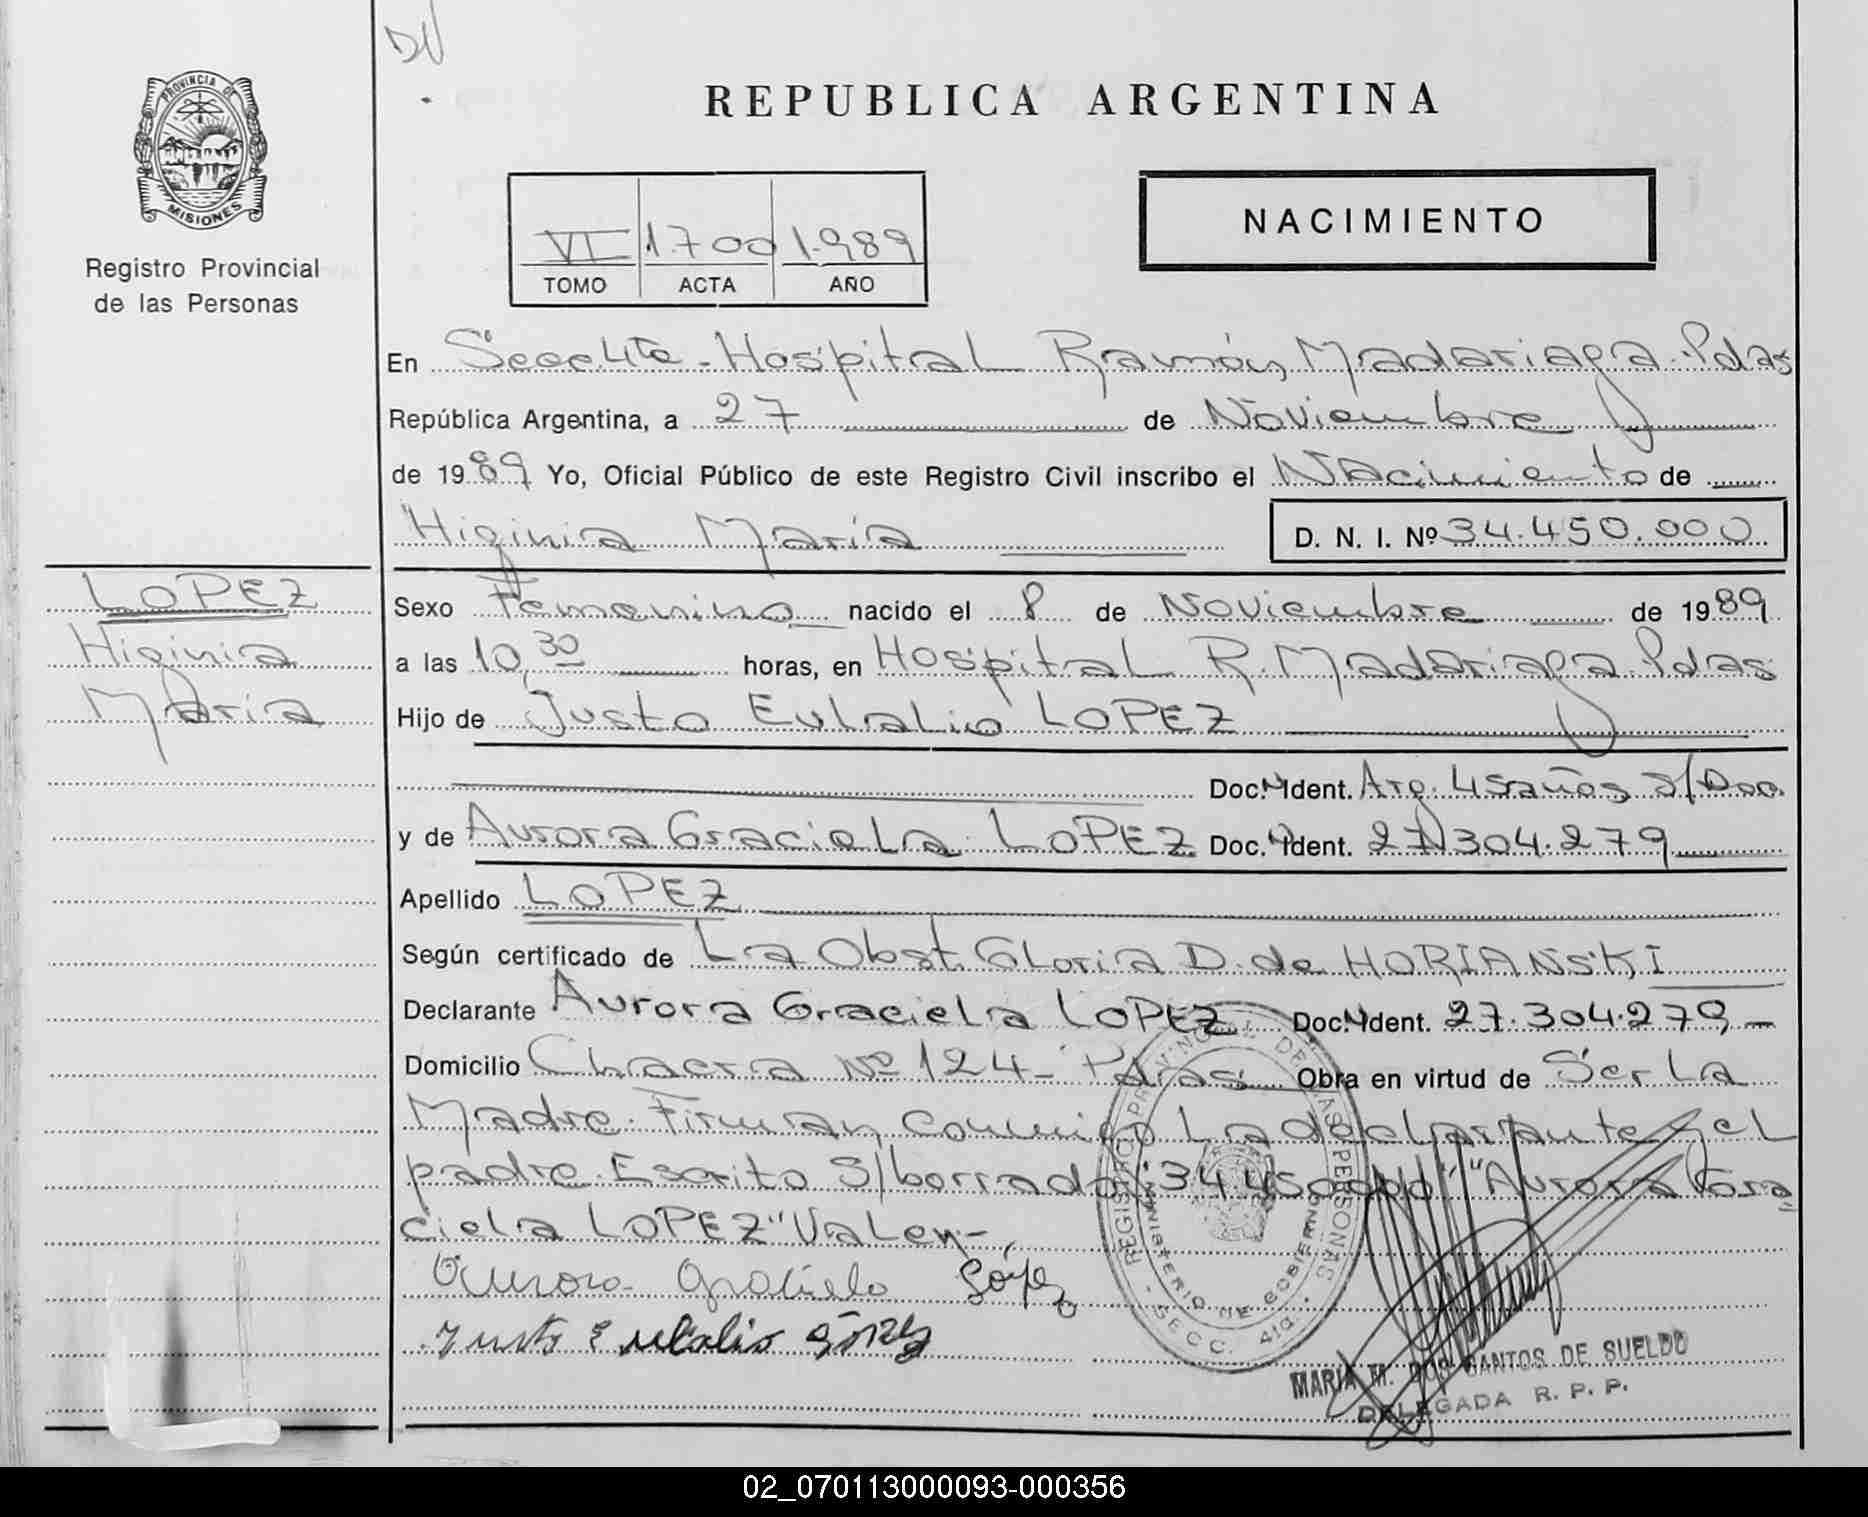 DV
PROVINCIA DE
MISIONES
Registro Provincial
de las Personas
REPUBLICA ARGENTINA
VI 1.700 1.989
TOMO ACTA AÑO
NACIMIENTO
En Secc 4ta - Hospital Ramón Madariaga. Pdas
República Argentina, a 27 de Noviembre
de 1989 Yo, Oficial Público de este Registro Civil inscribo el Nacimiento de
Higinia María
D. N. I. Nº 34.450.000
LOPEZ
Higinia
María
Sexo Femenino nacido el 8 de Noviembre de 1989
a las 10,30 horas, en Hospital R. Madariaga. Pdas
Hijo de Justo Eulalio LOPEZ
Doc. Ident. Arg. 45 años s/Doc.
y de Aurora Graciela LOPEZ Doc. Ident. 27.304.279
Apellido LOPEZ
Según certificado de La Obst. Gloria D. de HORIANSKI
Declarante Aurora Graciela LOPEZ Doc. Ident. 27.304.279, -
Domicilio Chacra Nº 124 - Pdas Obra en virtud de Ser La
Madre. Firman conmigo La declarante y el
padre. Escrito S/borrado "34450000" "Aurora Gra
ciela LOPEZ" Valen -,
Aurora Graciela López
Justo Eulalio López
REGISTRO PROVINCIAL DE LAS PERSONAS
MINISTERIO DE GOBIERNO
- SECC. 4ta. -
MARIA M. DOS SANTOS DE SUELDO
DELEGADA R. P. P.
02_070113000093-000356